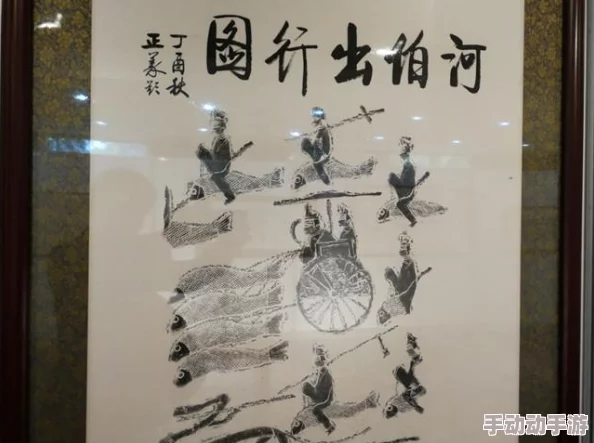 河伯出行圖
丁酉秋
正
手动动手游